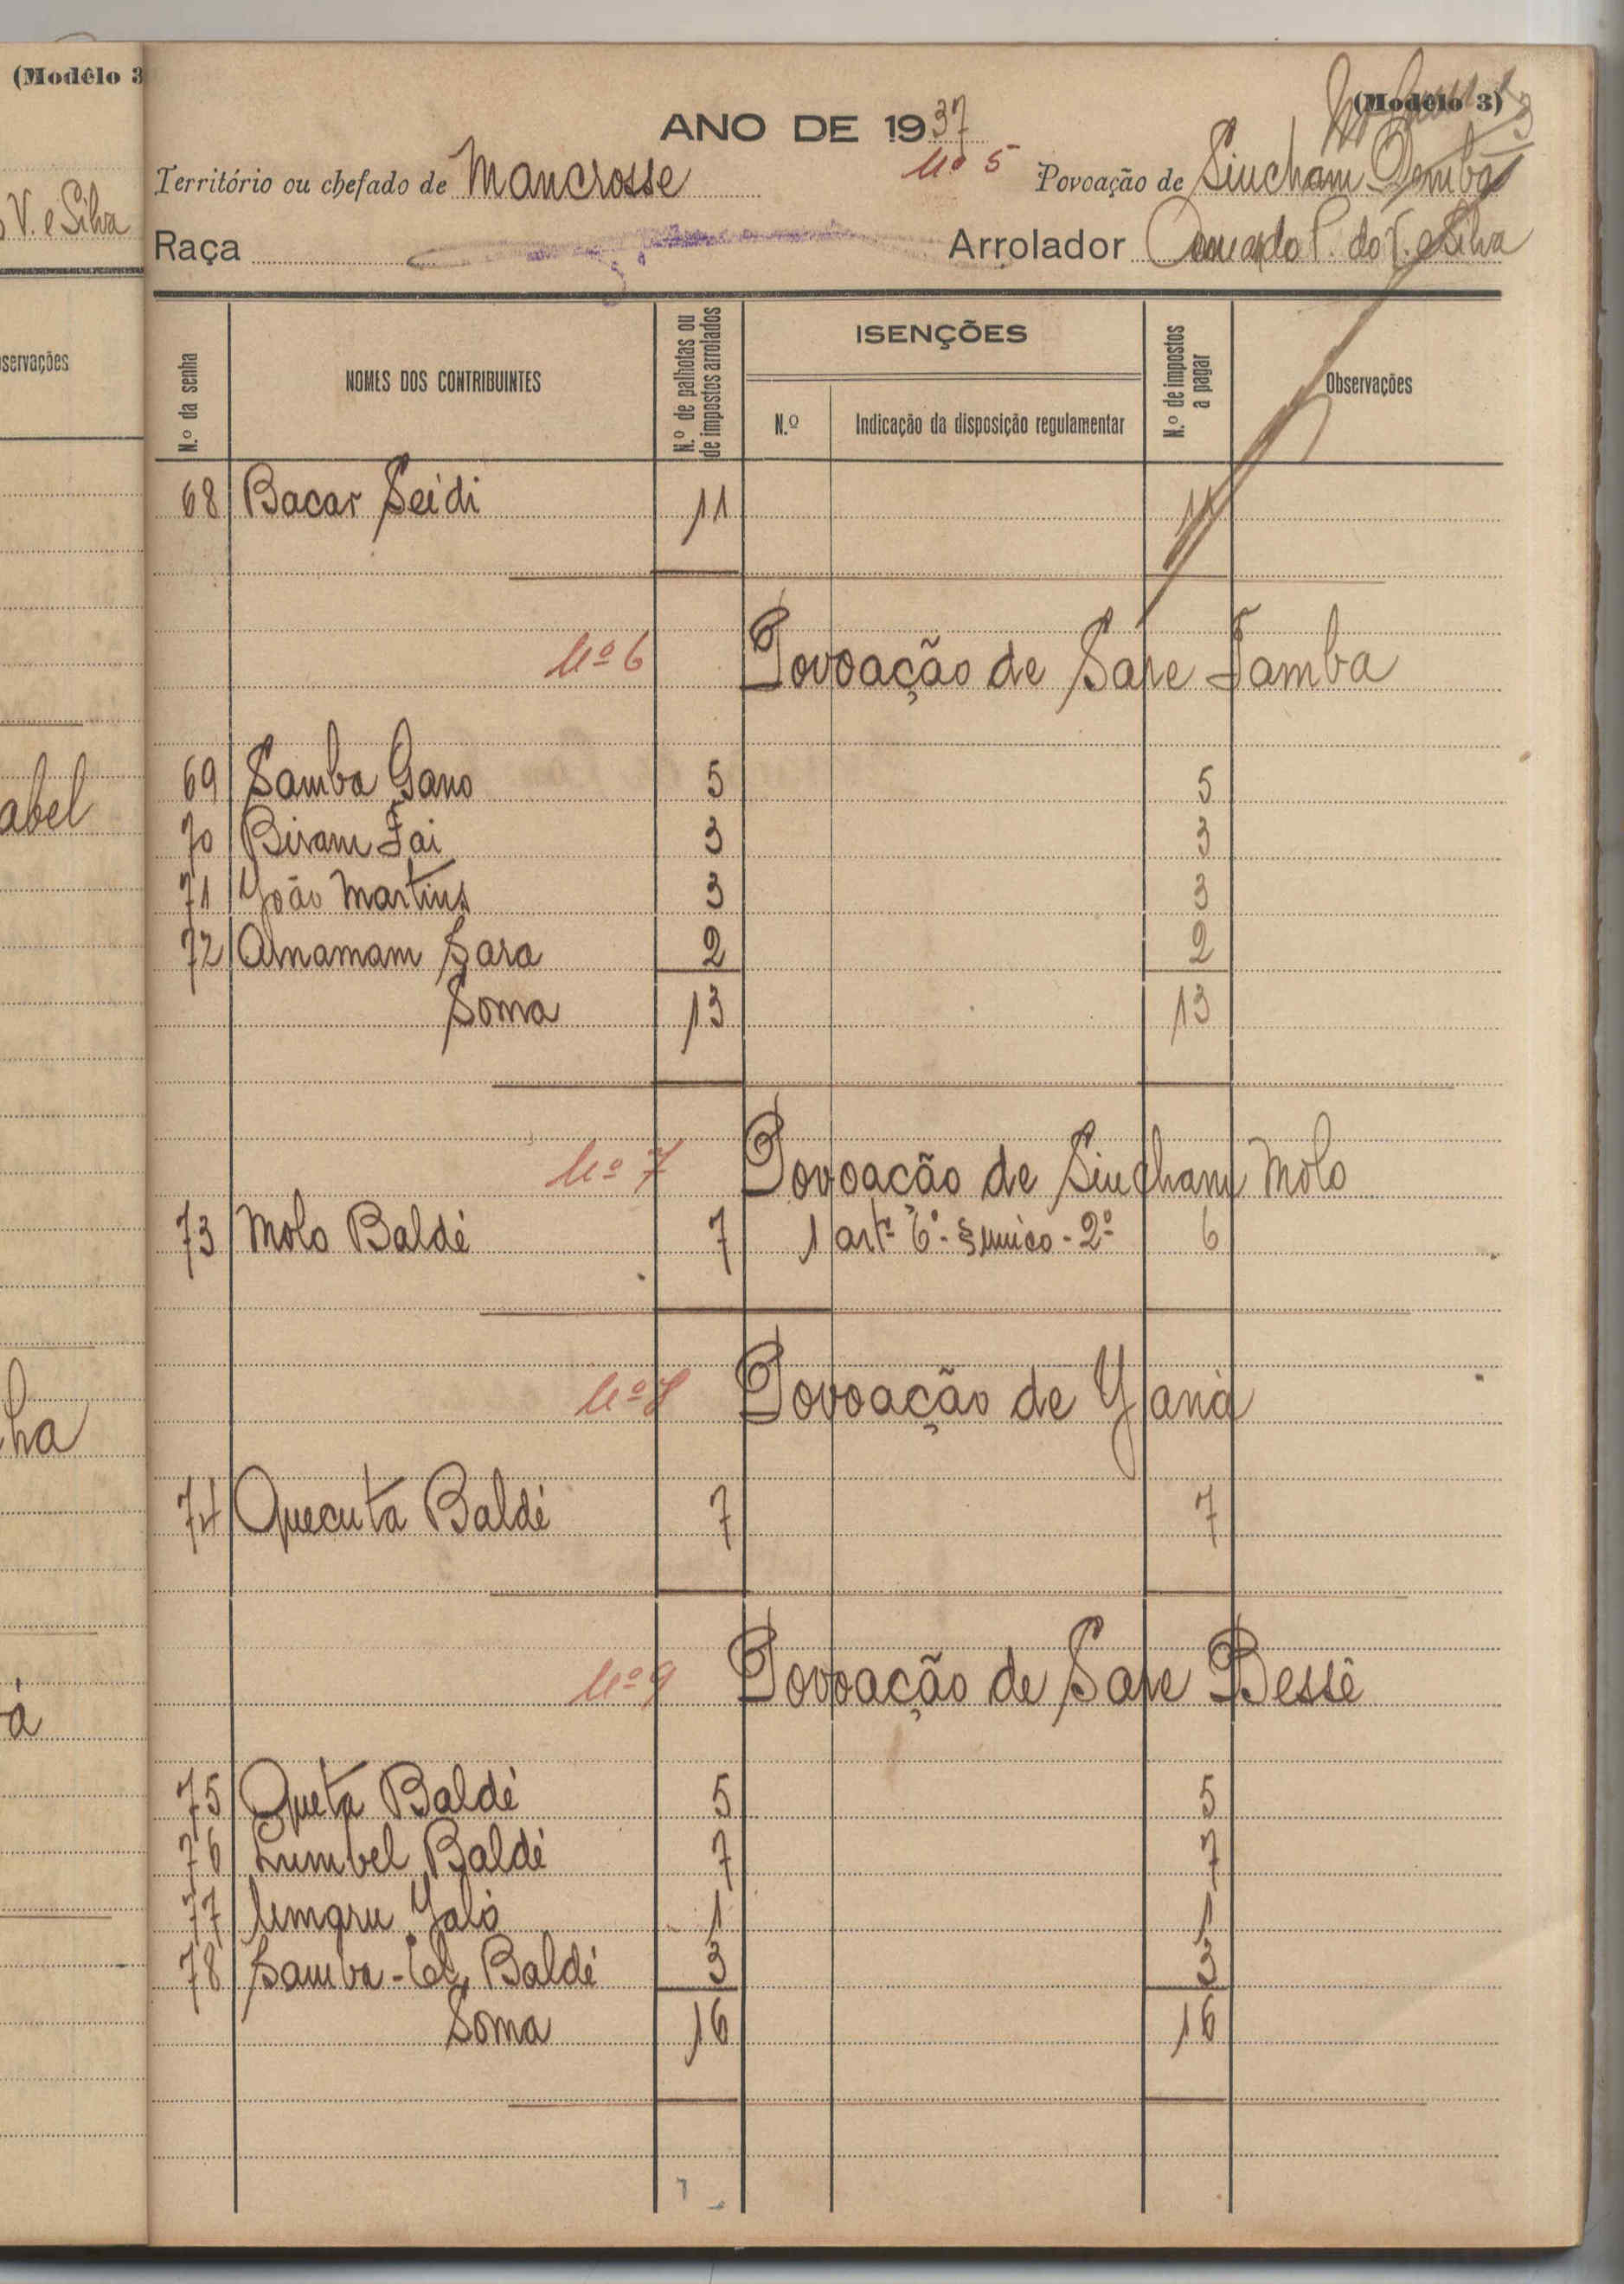 (Modêlo 3
V. e Silva
servações
abel
ha
á
(Modêlo 3)
ANO DE 1937
Território ou chefado de Mancrosse Nº 5 Povoação de Sincham Demba
Raça Arrolador P. do V. e Silva
N.º da senha NOMES DOS CONTRIBUINTES N.º de palhotas ou de impostos arrolados ISENÇÕES N.º de impostos a pagar Observações
N.º Indicação da disposição regulamentar
68 Bacar Seidi 11 11
Nº 6 Povoação de Sare Samba
69 Samba Gano 5 5
70 Biram Fai 3 3
71 João Martins 3 3
72 Amamam Sara 2 2
Soma 13 13
Nº 7 Povoação de Sincham Molo
73 Molo Baldé 7 1 artº 6º - § unico - 2º 6
Nº 8 Povoação de Yaná
74 Quecuta Baldé 7 7
Nº 9 Povoação de Sare Bessê
75 Queta Baldé 5 5
76 Lumbel Baldé 7 7
77 Umaru Jaló 1 1
78 Samba- Baldé 3 3
Soma 16 16